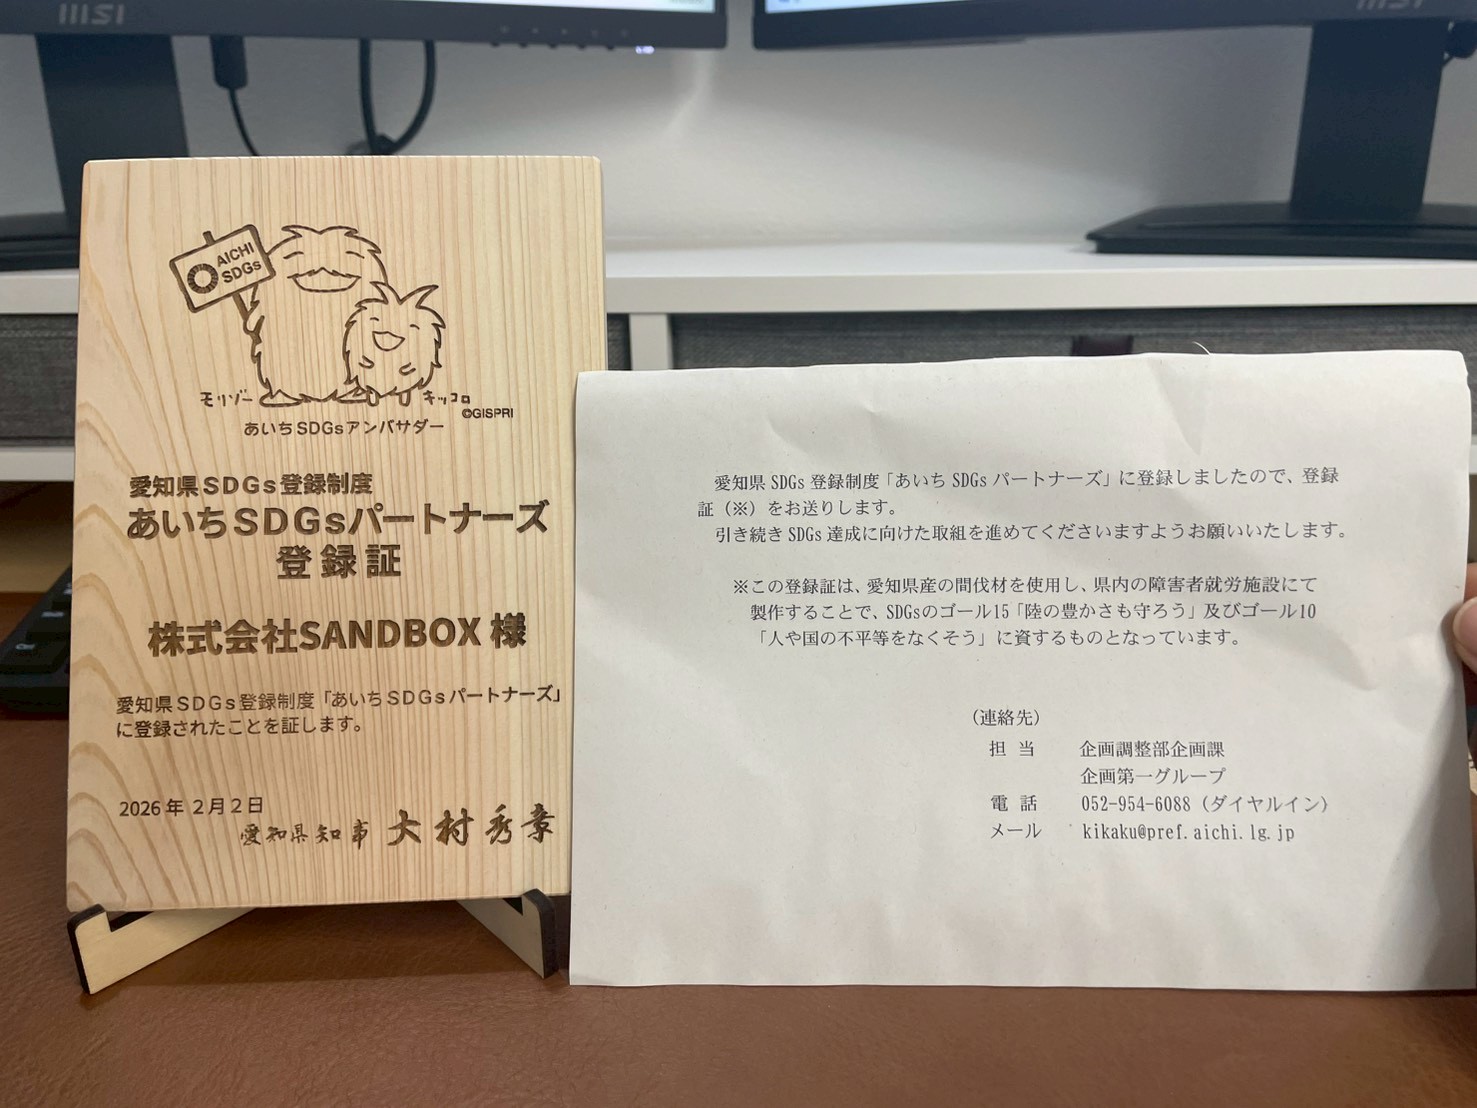 msi
msi
AICHI
SDGs
モリゾー
キッコロ
©GISPRI
あいちSDGsアンバサダー
愛知県SDGs登録制度
あいちSDGsパートナーズ
登録証
株式会社SANDBOX 様
愛知県SDGs登録制度「あいちSDGsパートナーズ」
に登録されたことを証します。
2026年 2月2日
愛知県知事 大村秀章
愛知県 SDGs 登録制度「あいち SDGs パートナーズ」に登録しましたので、登録
証（※）をお送りします。
引き続き SDGs 達成に向けた取組を進めてくださいますようお願いいたします。
※この登録証は、愛知県産の間伐材を使用し、県内の障害者就労施設にて
製作することで、SDGsのゴール15「陸の豊かさも守ろう」及びゴール10
「人や国の不平等をなくそう」に資するものとなっています。
（連絡先）
担 当 企画調整部企画課
企画第一グループ
電 話 052-954-6088（ダイヤルイン）
メール kikaku@pref.aichi.lg.jp